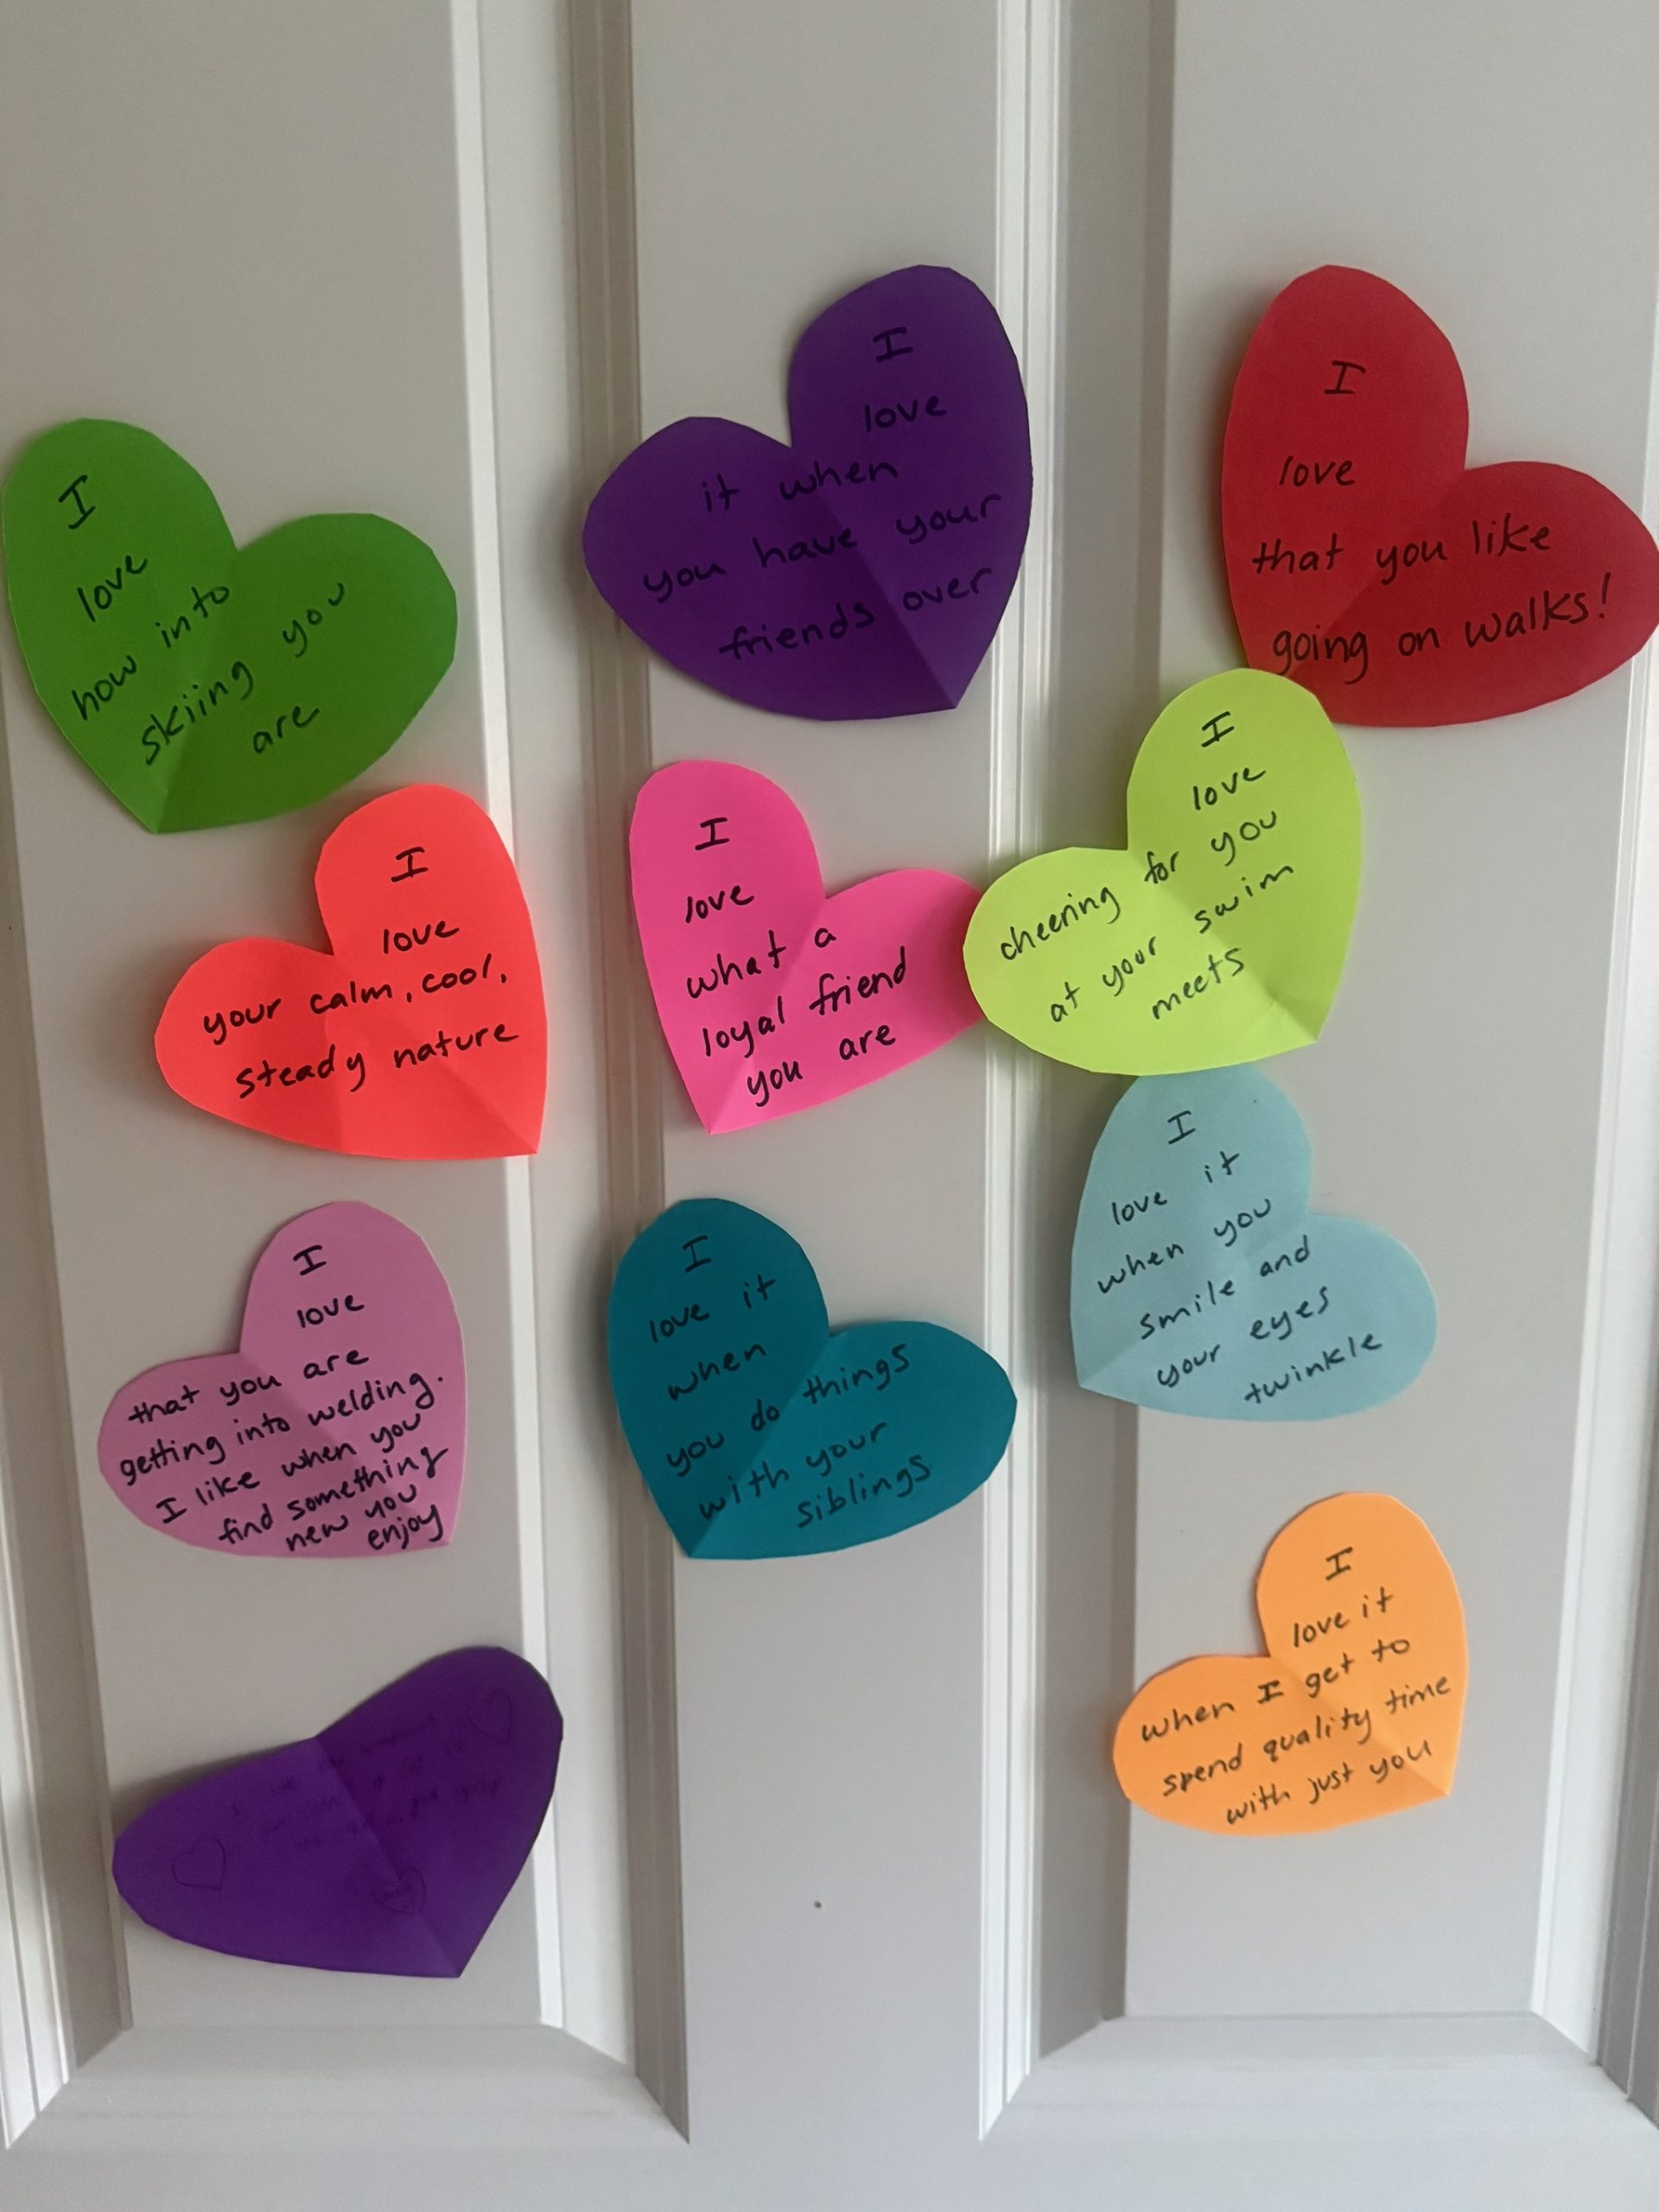 I
love
how into
skiing you
are
I
love
it when
you have your
friends over
I
love
that you like
going on walks!
I
love
your calm, cool,
steady nature
I
love
what a
loyal friend
you are
I
love
cheering for you
at your swim
meets
I
love
that you are
getting into welding.
I like when you
find something
new you
enjoy
I
love it
when
you do things
with your
siblings
I
love it
when you
smile and
your eyes
twinkle
I
love it
when I get to
spend quality time
with just you